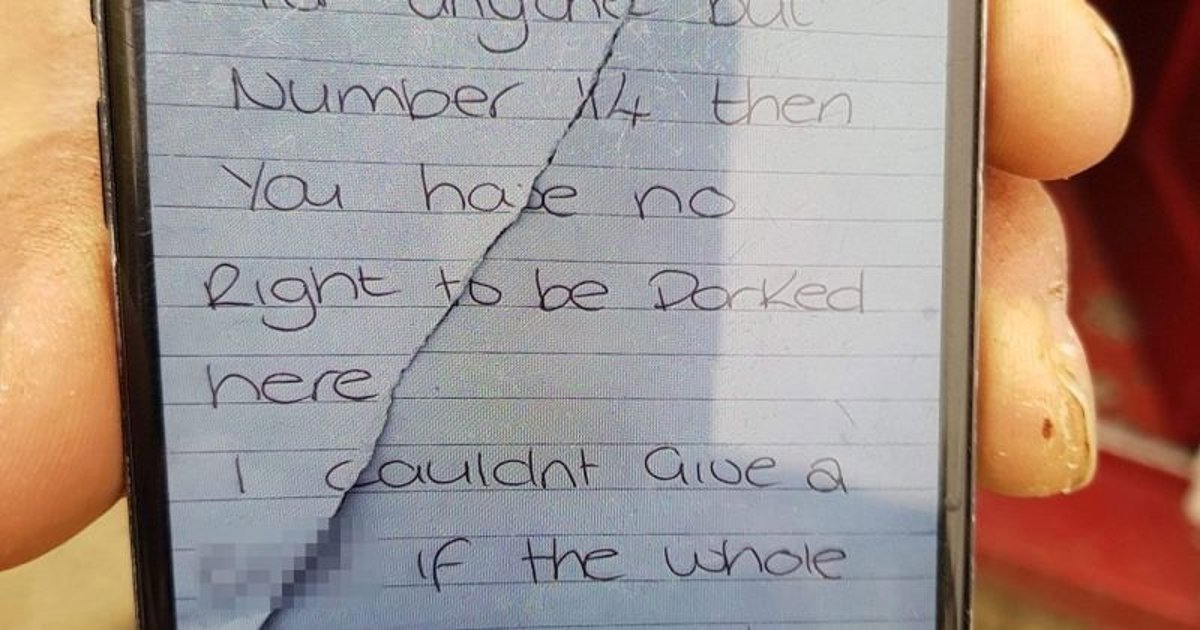 for anyone but
Number 14 then
You have no
Right to be Parked
here
I couldnt Give a
if the whole